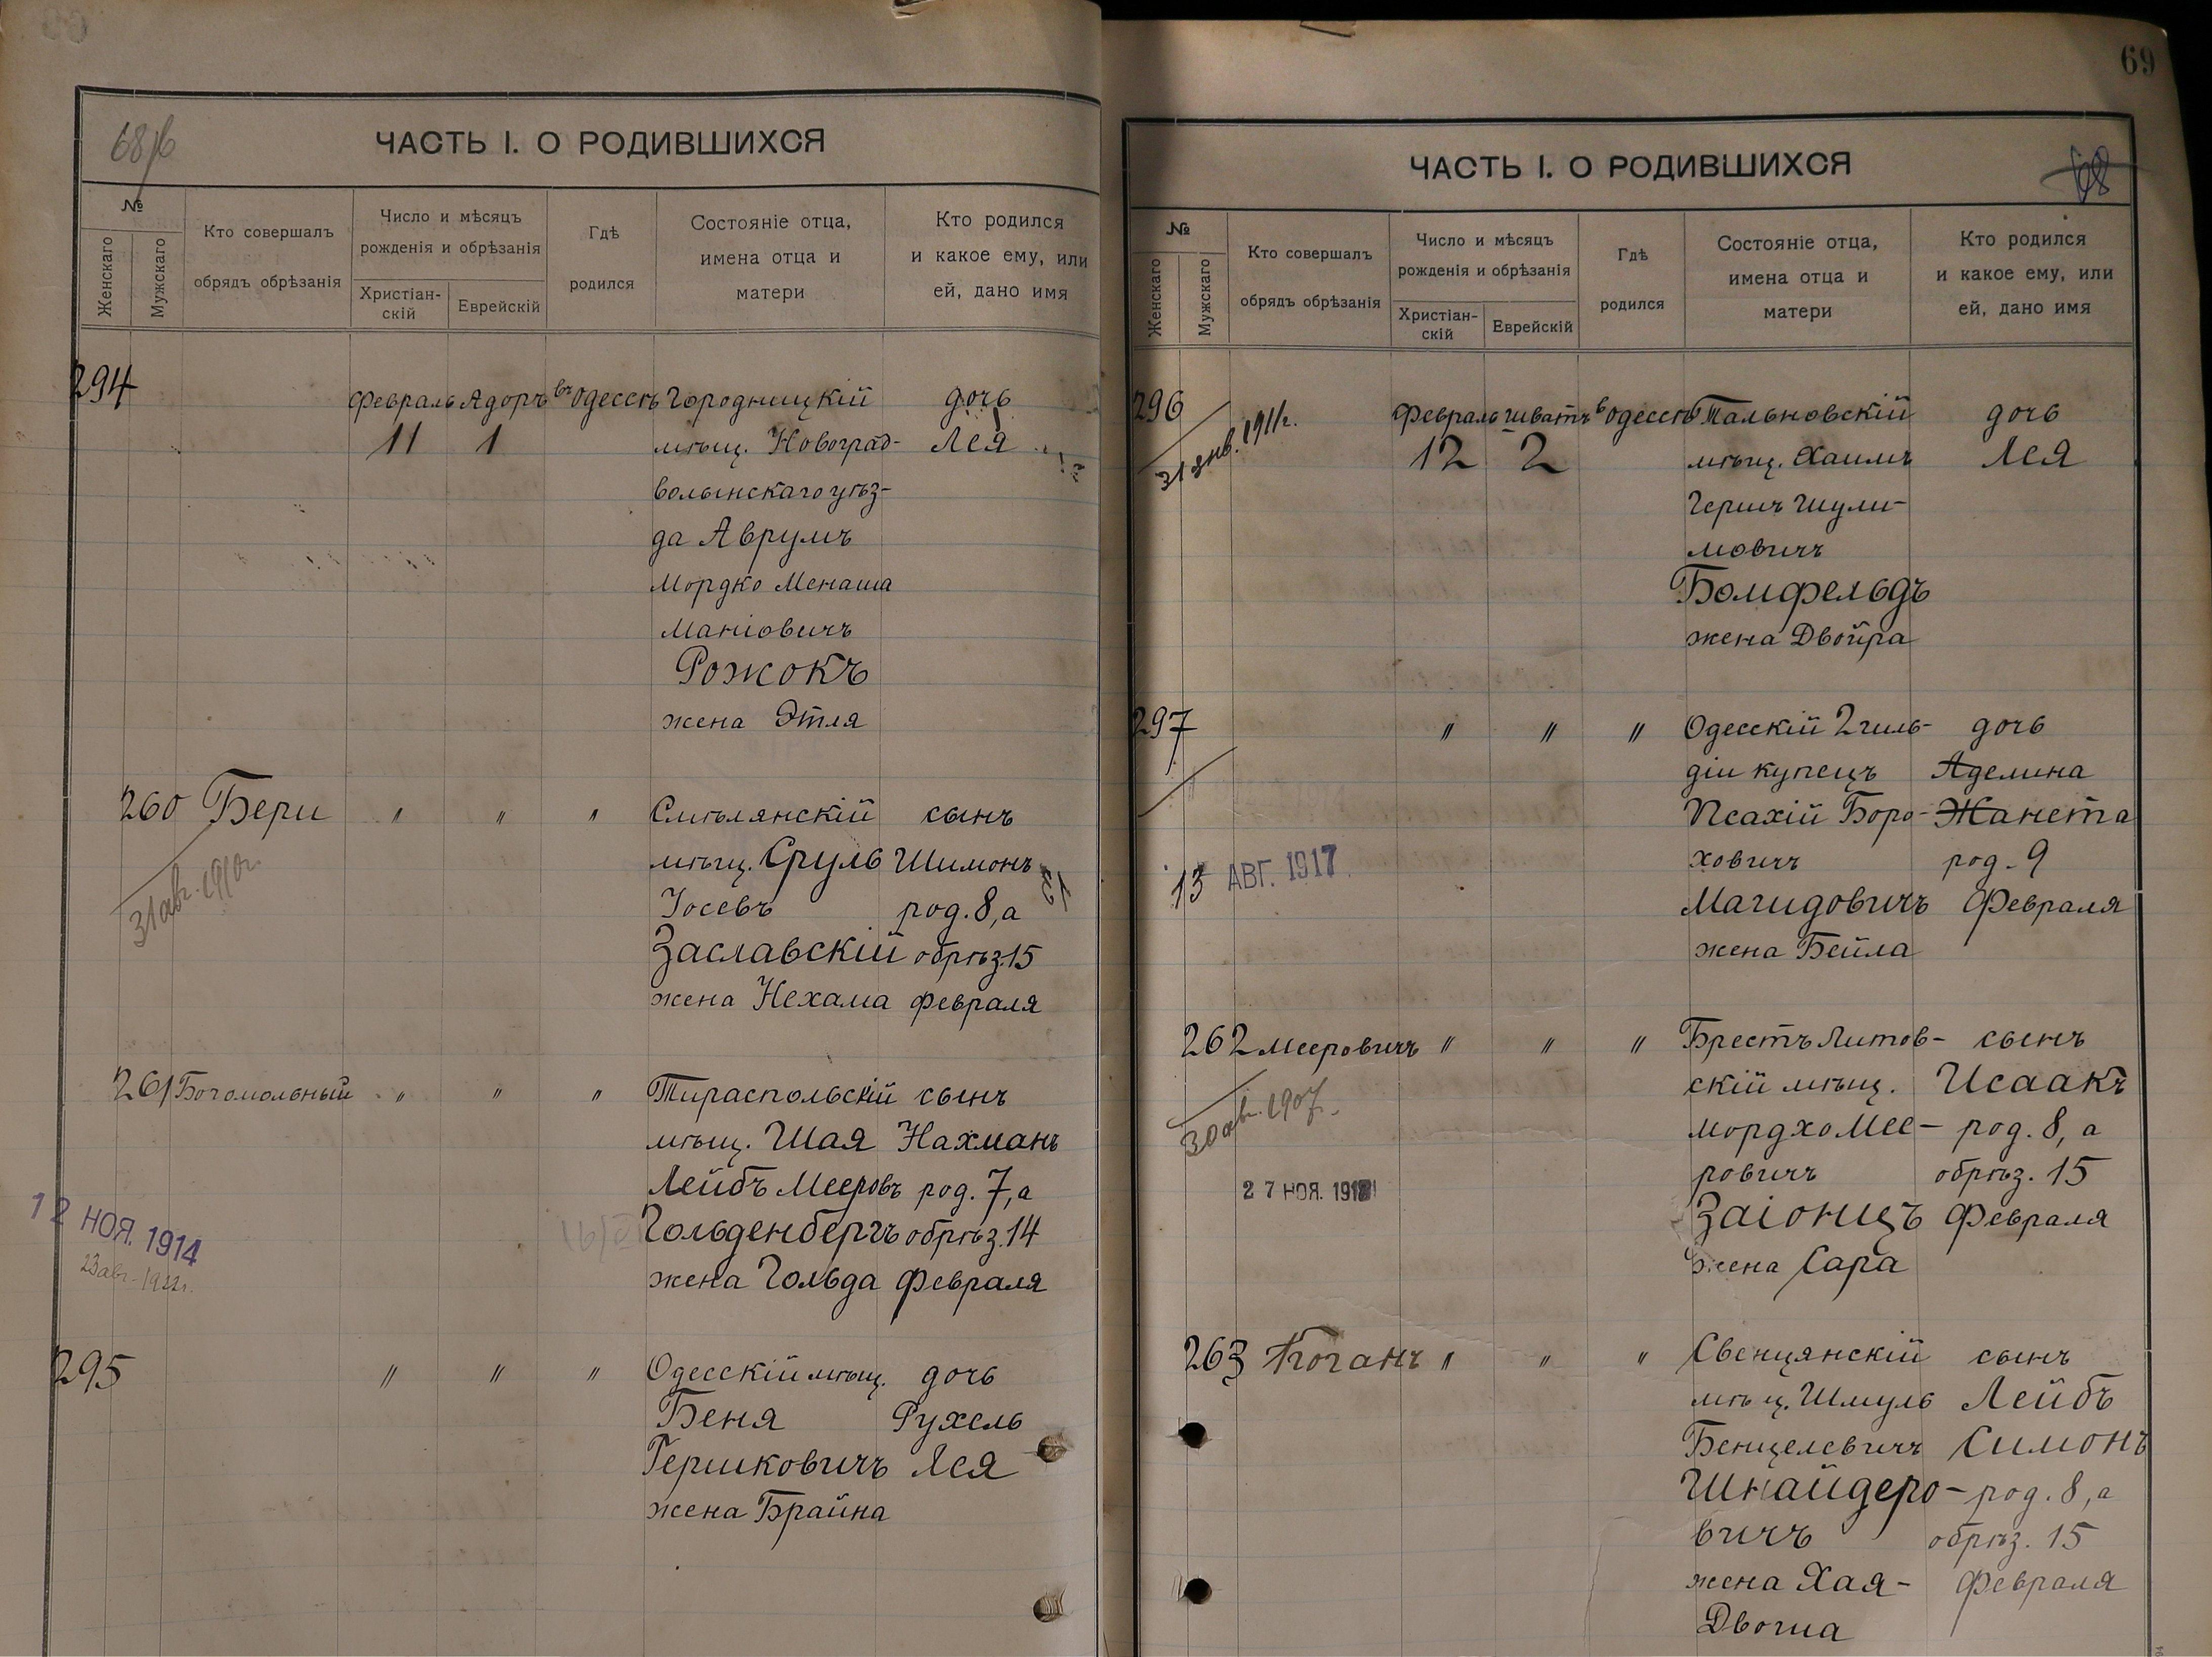 68/б
ЧАСТЬ I. О РОДИВШИХСЯ
№
Женскаго
Мужскаго
Кто совершалъ
обрядъ обрѣзанія
Число и мѣсяцъ
рожденія и обрѣзанія
Христіан-
скій
Еврейскій
Гдѣ
родился
Состояніе отца,
имена отца и
матери
Кто родился
и какое ему, или
ей, дано имя
294 Февраль Адоръ въ Одессѣ Городницкій дочь
11 1 мѣщ. Новоград- Лея
волынскаго уѣз-
да Аврумъ
Мордко Менаша
Маніовичъ
Рожокъ
жена Этля
260 Бери " " " Смѣлянскій сынъ
мѣщ. Сруль Шимонъ
Іосевъ род. 8, а
Заславскій обрѣз. 15
жена Нехама Февраля
31 авг. 1910г.
261 Богомольный " " " Тираспольскій сынъ
мѣщ. Шая Нахманъ
Лейбъ Мееровъ род. 7, а
Гольденбергъ обрѣз. 14
жена Гольда Февраля
12 НОЯ. 1914
295 " " " Одесскій мѣщ. дочь
Беня Рухель
Гершковичъ Лея
жена Брайна
69
ЧАСТЬ I. О РОДИВШИХСЯ
68
№
Женскаго
Мужскаго
Кто совершалъ
обрядъ обрѣзанія
Число и мѣсяцъ
рожденія и обрѣзанія
Христіан-
скій
Еврейскій
Гдѣ
родился
Состояніе отца,
имена отца и
матери
Кто родился
и какое ему, или
ей, дано имя
296 Февраль Шватъ в Одессѣ Тальновскій дочь
12 2 мѣщ. Хаимъ Лея
Гершъ Шули-
мовичъ
Бомфельдъ
жена Двойра
31 янв. 1911г.
297 " " " Одесскій 2 гиль- дочь
діи купецъ Аделина
Псахій Боро- Жанета
ховичъ род. 9
Магидовичъ Февраля
жена Бейла
13 АВГ. 1917
262 Мееровичъ " " " Брестъ Литов- сынъ
скій мѣщ. Исаакъ
Мордхо Мее- род. 8, а
ровичъ обрѣз. 15
Заіонцъ Февраля
жена Сара
30 авг. 1907г.
27 НОЯ.
263 Коганъ " " " Свенцянскій сынъ
мѣщ. Шмуль Лейбъ
Бенцелевичъ Симонъ
Шнайдеро- род. 8, а
вичъ обрѣз. 15
жена Хая- Февраля
Двоша